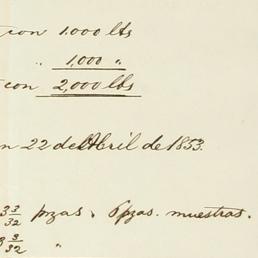 con 1.000 lbs
" 1,000 "
con 2,000 lbs
n 22 de Abril de 1853.
3 3/32 pzas. 6 pzas. muestras.
3 3/32 "